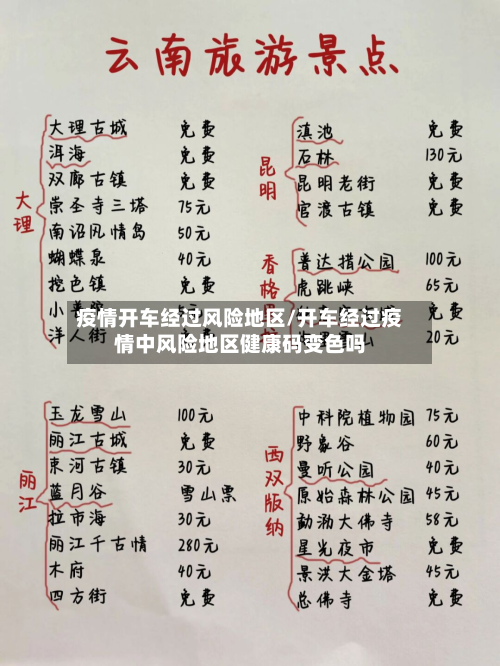 云南旅游景点
大理
大理古城 免费
洱海 免费
双廊古镇 免费
崇圣寺三塔 75元
南诏风情岛 50元
蝴蝶泉 40元
挖色镇 免费
小
洋人街
昆明
滇池 免费
石林 130元
昆明老街 免费
官渡古镇 免费
香格
普达措公园 100元
虎跳峡 65元
20元
疫情开车经过风险地区/开车经过疫
情中风险地区健康码变色吗
丽江
玉龙雪山 100元
丽江古城 免费
束河古镇 30元
蓝月谷 雪山票
拉市海 30元
丽江千古情 280元
木府 40元
四方街 免费
西双版纳
中科院植物园 75元
野象谷 60元
曼听公园 40元
原始森林公园 45元
勐泐大佛寺 58元
星光夜市 免费
景洪大金塔 45元
总佛寺 免费